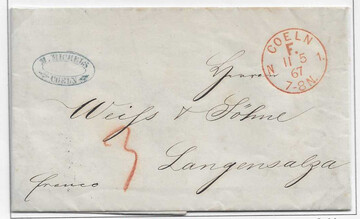 M. MICHELS
COELN
COELN
F.
11 5
67
N 1
7-8N
Herrn
Weiß & Söhne
3
Langensalza
franco